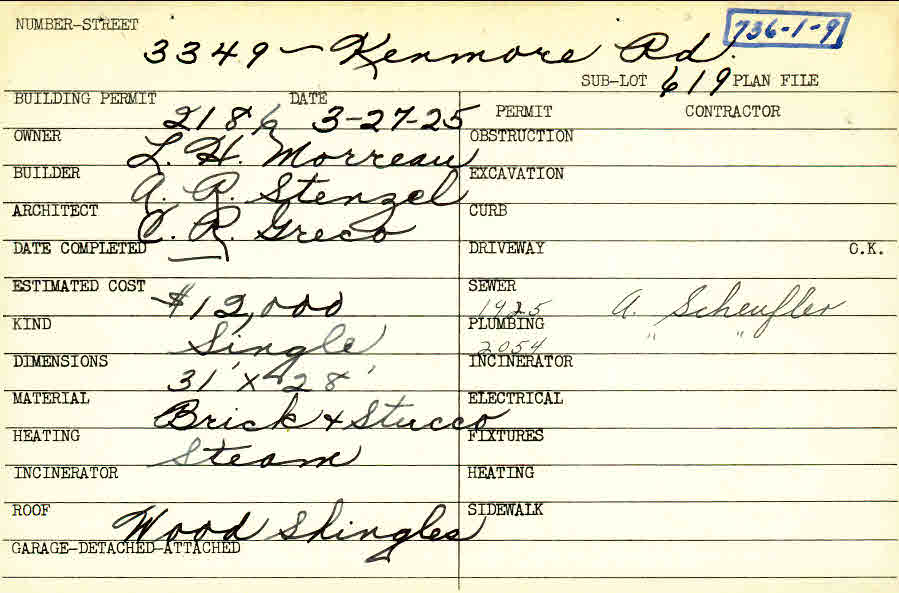 NUMBER-STREET
3349 - Kenmore Rd. 736-1-9
SUB-LOT 619 PLAN FILE
BUILDING PERMIT 2186 DATE 3-27-25
PERMIT CONTRACTOR
OWNER L. H. Morreau
OBSTRUCTION
BUILDER A. R. Stenzel
EXCAVATION
ARCHITECT C. R. Greco
CURB
DATE COMPLETED
DRIVEWAY O.K.
ESTIMATED COST $12,000
SEWER 1925 A. Scheufler
KIND Single
PLUMBING 2054 " "
DIMENSIONS 31' x 28'
INCINERATOR
MATERIAL Brick + Stucco
ELECTRICAL
HEATING Steam
FIXTURES
INCINERATOR
HEATING
ROOF Wood Shingles
SIDEWALK
GARAGE-DETACHED-ATTACHED